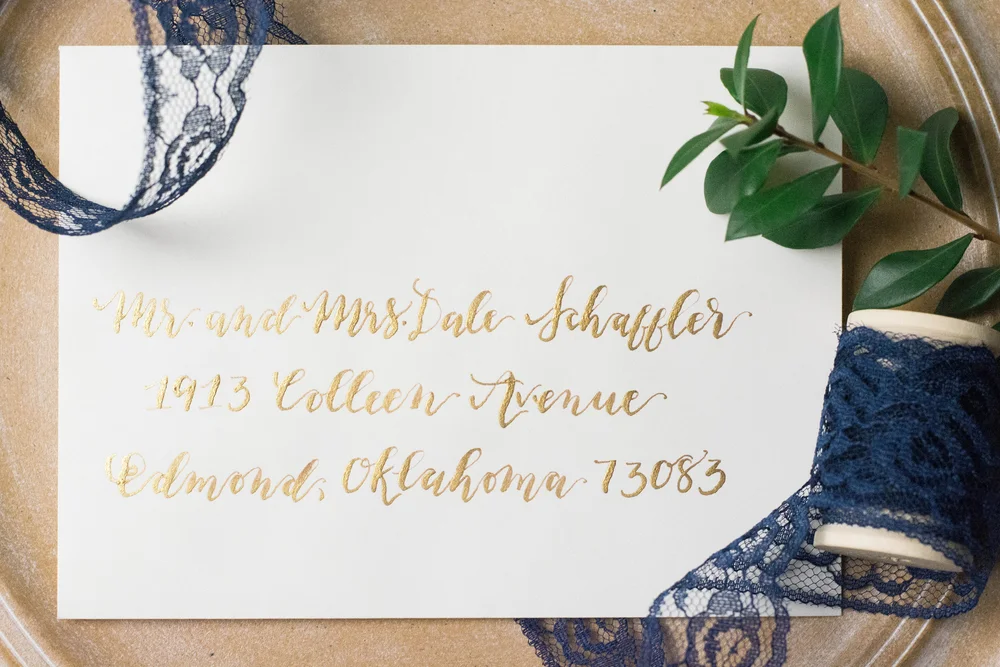 Mr. and Mrs. Dale Schaffler
1913 Colleen Avenue
Edmond, Oklahoma 73083